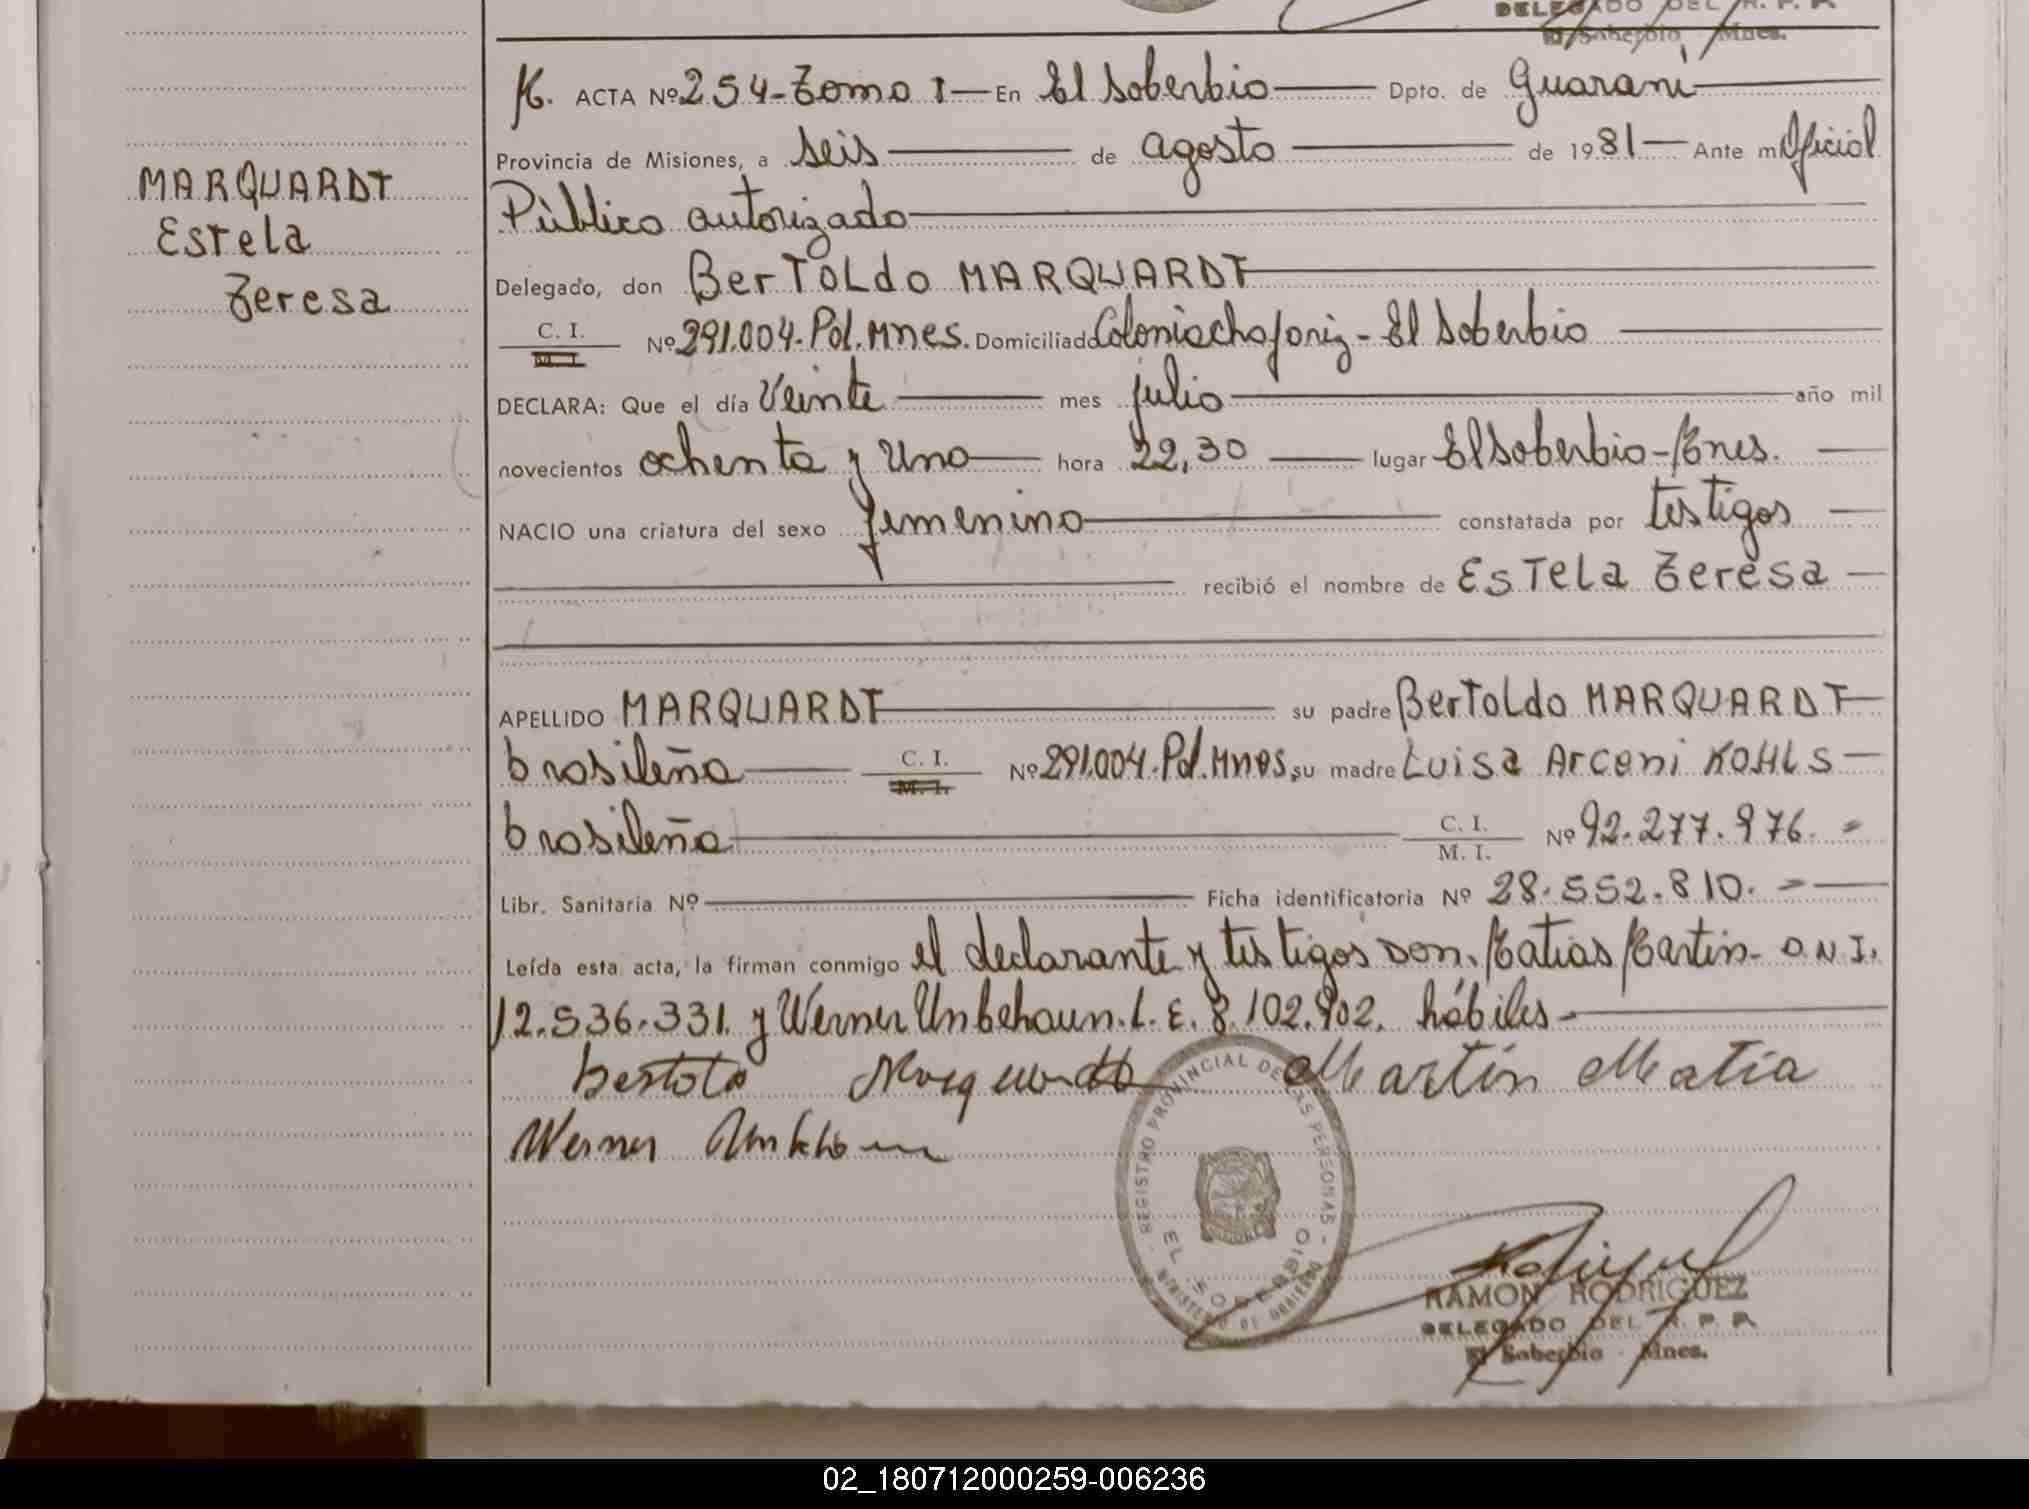 DELEGADO DEL R. P. P.
El Soberbio Mnes.
MARQUARDT
Estela
Teresa
ACTA Nº 254-Tomo I — En El Soberbio — Dpto. de Guaraní
Provincia de Misiones, a seis — de agosto — de 1981 — Ante mi Oficial
Público autorizado
Delegado, don Bertoldo MARQUARDT
C. I.
M. I.
Nº 291.004. Pol. Mnes. Domiciliado Colonia chafariz - El Soberbio
DECLARA: Que el día Veinte — mes julio — año mil
novecientos ochenta y Uno — hora 22,30 — lugar El Soberbio - Mnes.
NACIO una criatura del sexo femenino — constatada por testigos
recibió el nombre de Estela Teresa
APELLIDO MARQUARDT — su padre Bertoldo MARQUARDT
brasileña — C. I. M. I. Nº 291.004. Pol. Mnes, su madre Luisa Arceni KOHLS
brasileña — C. I. M. I. Nº 92.277.976. =
Libr. Sanitaria Nº — Ficha identificatoria Nº 28.552.810. =
Leída esta acta, la firman conmigo el declarante y testigos Don. Matias Martin - D.N.I.
12.536.331. y Werner Unbehaun. L. E. 8.102.902. hábiles
Martin Matia
Werner
REGISTRO PROVINCIAL DE LAS PERSONAS
EL SOBERBIO
MINISTERIO DE GOBIERNO
RAMON RODRIGUEZ
DELEGADO DEL R. P. P.
El Soberbio - Mnes.
02_180712000259-006236